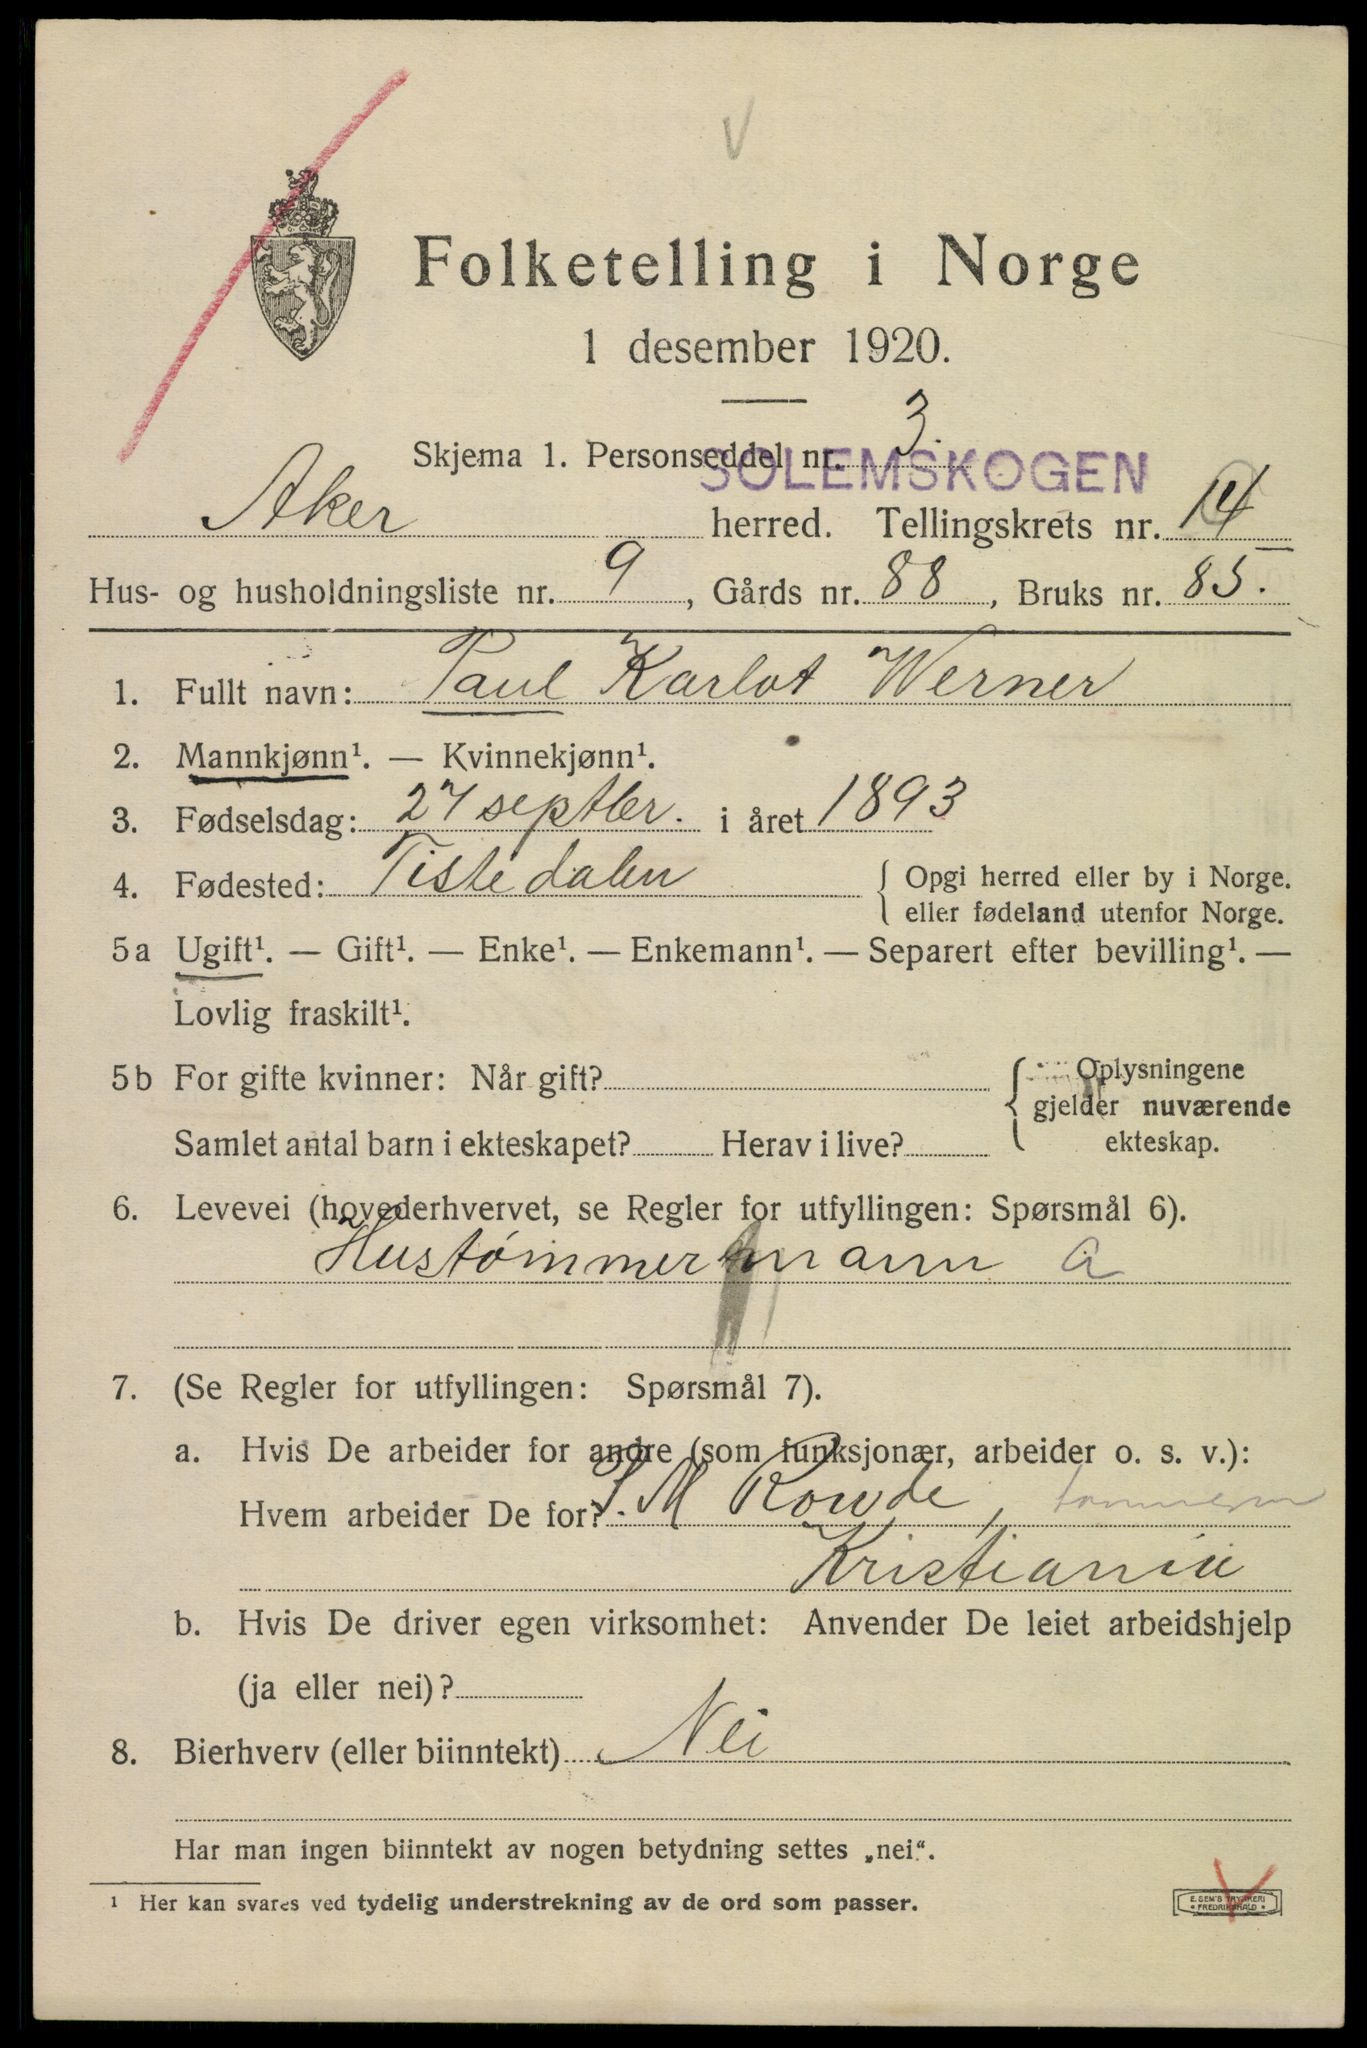 Folketelling i Norge
1 desember 1920.
Skjema 1. Personseddel nr. 3.
SOLEMSKOGEN
Aker herred. Tellingskrets nr. 14
Hus- og husholdningsliste nr. 9, Gårds nr. 88, Bruks nr. 85.
1. Fullt navn: Paul Karlot Werner
2. Mannkjønn¹. — Kvinnekjønn¹.
3. Fødselsdag: 27 septber. i året 1893
4. Fødested: Tistedalen { Opgi herred eller by i Norge.
eller fødeland utenfor Norge.
5a Ugift¹. — Gift¹. — Enke¹. — Enkemann¹. — Separert efter bevilling¹. —
Lovlig fraskilt¹.
5b For gifte kvinner: Når gift? { Oplysningene
gjelder nuværende
Samlet antal barn i ekteskapet? Herav i live? ekteskap.
6. Levevei (hovederhvervet, se Regler for utfyllingen: Spørsmål 6).
Hustømmermann a
7. (Se Regler for utfyllingen: Spørsmål 7).
a. Hvis De arbeider for andre (som funksjonær, arbeider o. s. v.):
Hvem arbeider De for? M Rowde,
Kristiania
b. Hvis De driver egen virksomhet: Anvender De leiet arbeidshjelp
(ja eller nei)?
8. Bierhverv (eller biinntekt) Nei
Har man ingen biinntekt av nogen betydning settes „nei“.
¹ Her kan svares ved tydelig understrekning av de ord som passer.
E. SEM'S TRYKKERI
* FREDRIKSHALD *